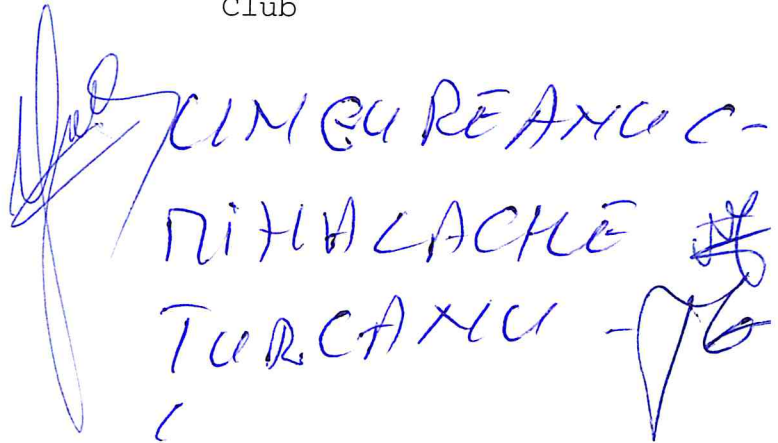 Club
UNGUREANU C-
MIHALACHE
TURCANU -